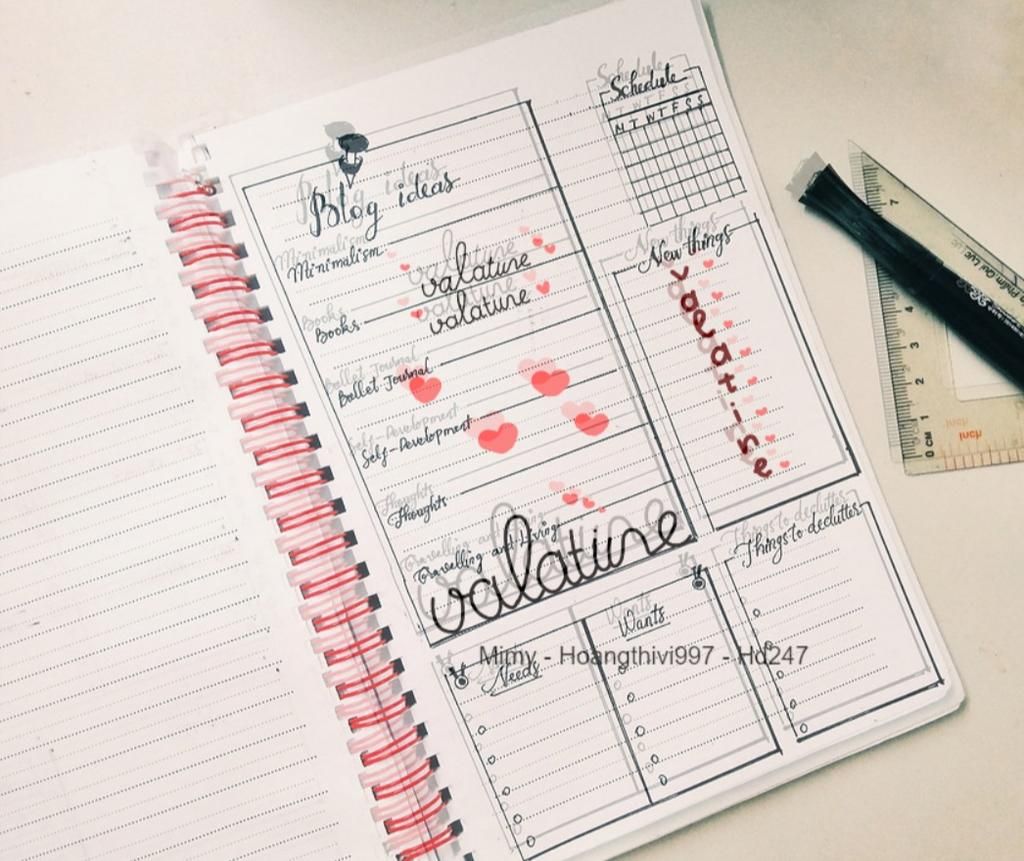 Schedule
M T W T F S S
Blog ideas
Minimalism
valatine
valatine
Books
Bullet Journal
Self-Development
Thoughts
Travelling and Living
valatiine
New things
valatine
Things to declutter
Needs
Wants
Mimy - Hoangthivi997 - Hd247
7
4
3
2
1
0 CM
inch